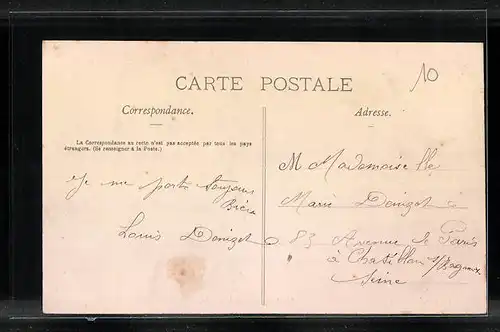 10
CARTE POSTALE
Correspondance.
Adresse.
La Correspondance au recto n'est pas acceptée par tous les pays
étrangers. (Se renseigner à la Poste.)
Je me porte toujours
Bien
Louis Denizot
M Mademoiselle
Marie Denizot
83 Avenue de Paris
à Chatillon s/Bagneux
Seine